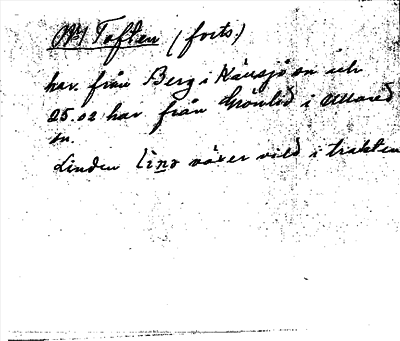 Toften (forts.)
har. från Berg i Källsjö sn och
25.02 har från Grönlid i Ullared
sn.
Linden lind växer vild i trakten